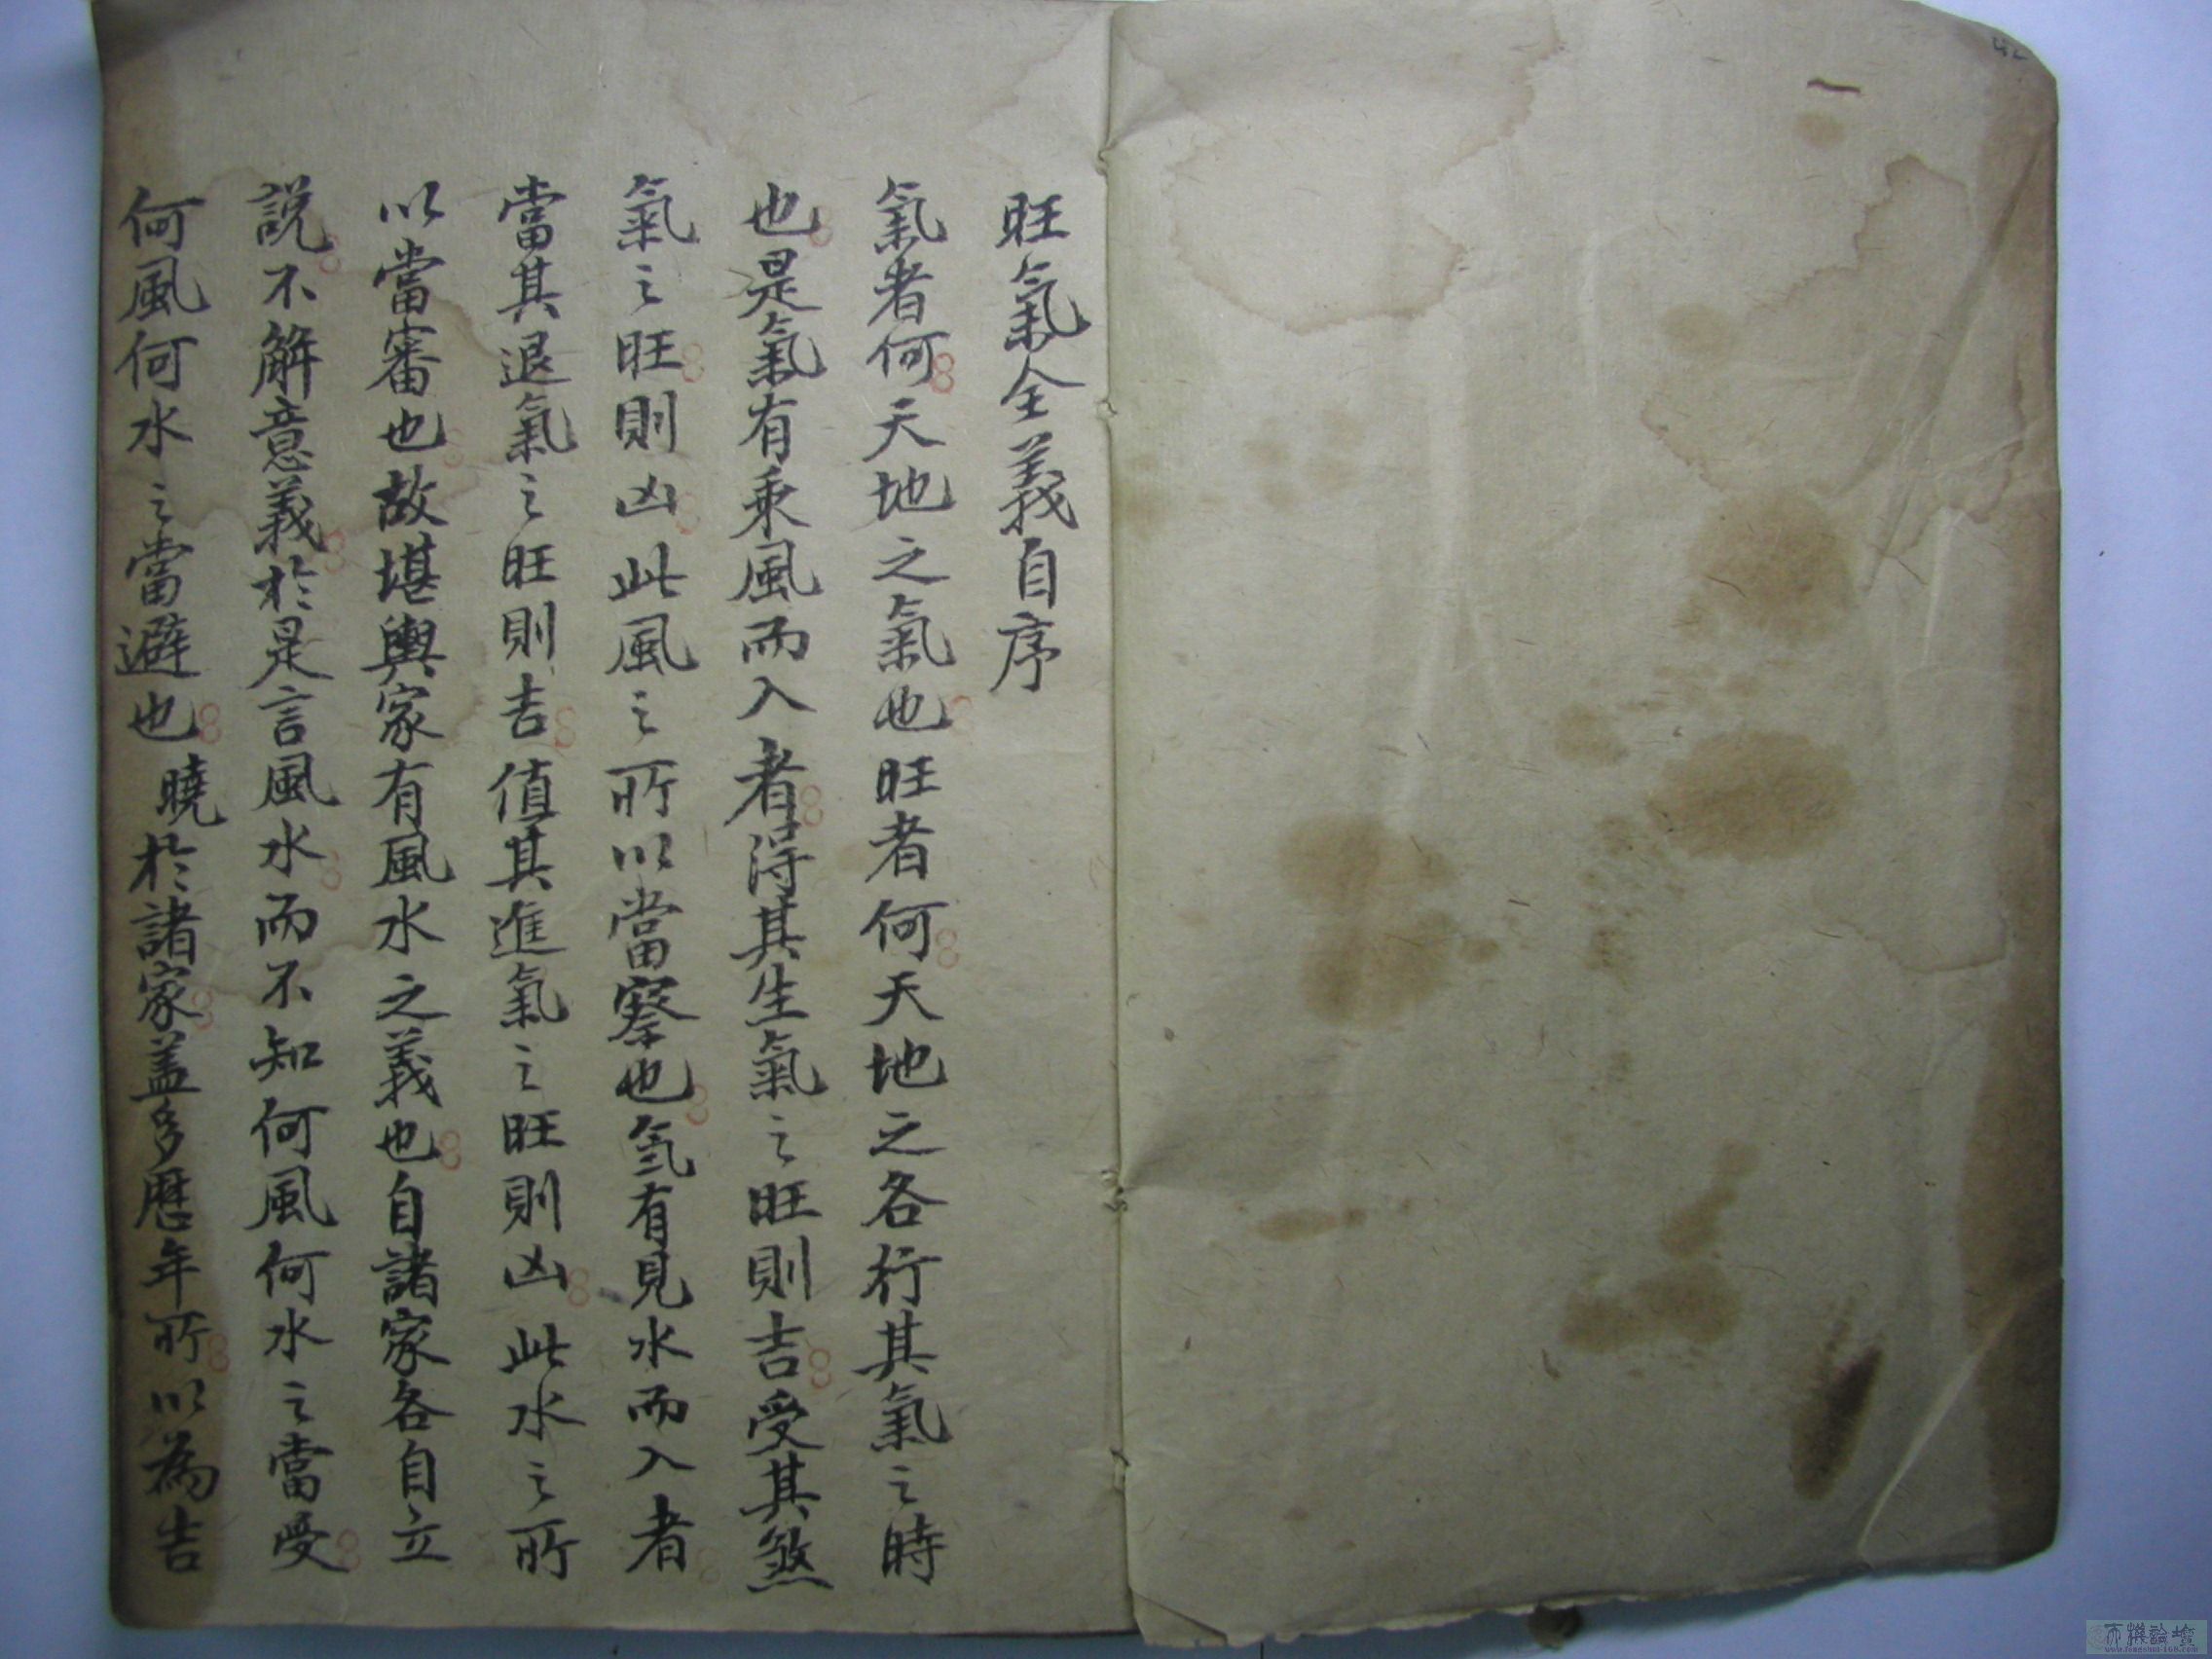 旺氣全義自序
氣者何天地之氣也旺者何天地之各行其氣之時
也是氣有乘風而入者得其生氣之旺則吉受其煞
氣之旺則凶此風之所以當察也氣有見水而入者
當其退氣之旺則吉值其進氣之旺則凶此水之所
以當審也故堪輿家有風水之義也自諸家各自立
說不解意義於是言風水而不知何風何水之當受
何風何水之當避也曉於諸家蓋多歷年所以為吉